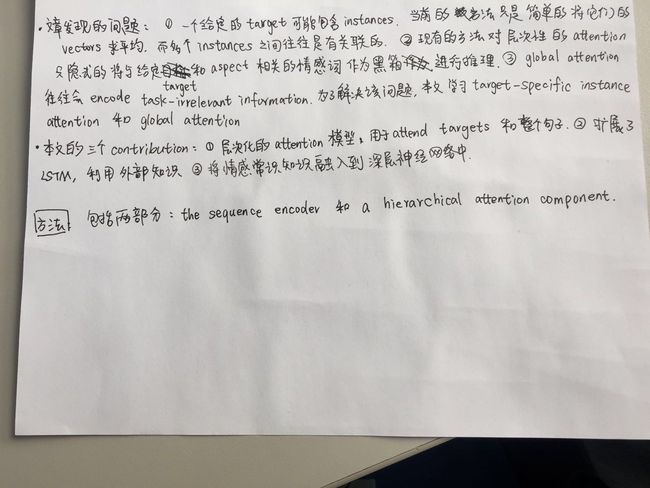 ·发现的问题: ① 一个给定的 target 可能包含 instances. 当前的方法只是简单的将它们的
vectors 求平均. 而多个 instances 之间往往是有关联的. ② 现有的方法对层次性的 attention
只隐式的将与给定 target 和 aspect 相关的情感词作为黑箱进行推理. ③ global attention
往往会 encode task-irrelevant information. 为了解决该问题, 本文学习 target-specific instance
attention 和 global attention
·本文的三个 contribution: ① 层次化的 attention 模型, 用于 attend targets 和整个句子. ② 扩展了
LSTM, 利用外部知识 ③ 将情感常识知识融入到深层神经网络中.
方法: 包括两部分: the sequence encoder 和 a hierarchical attention component.